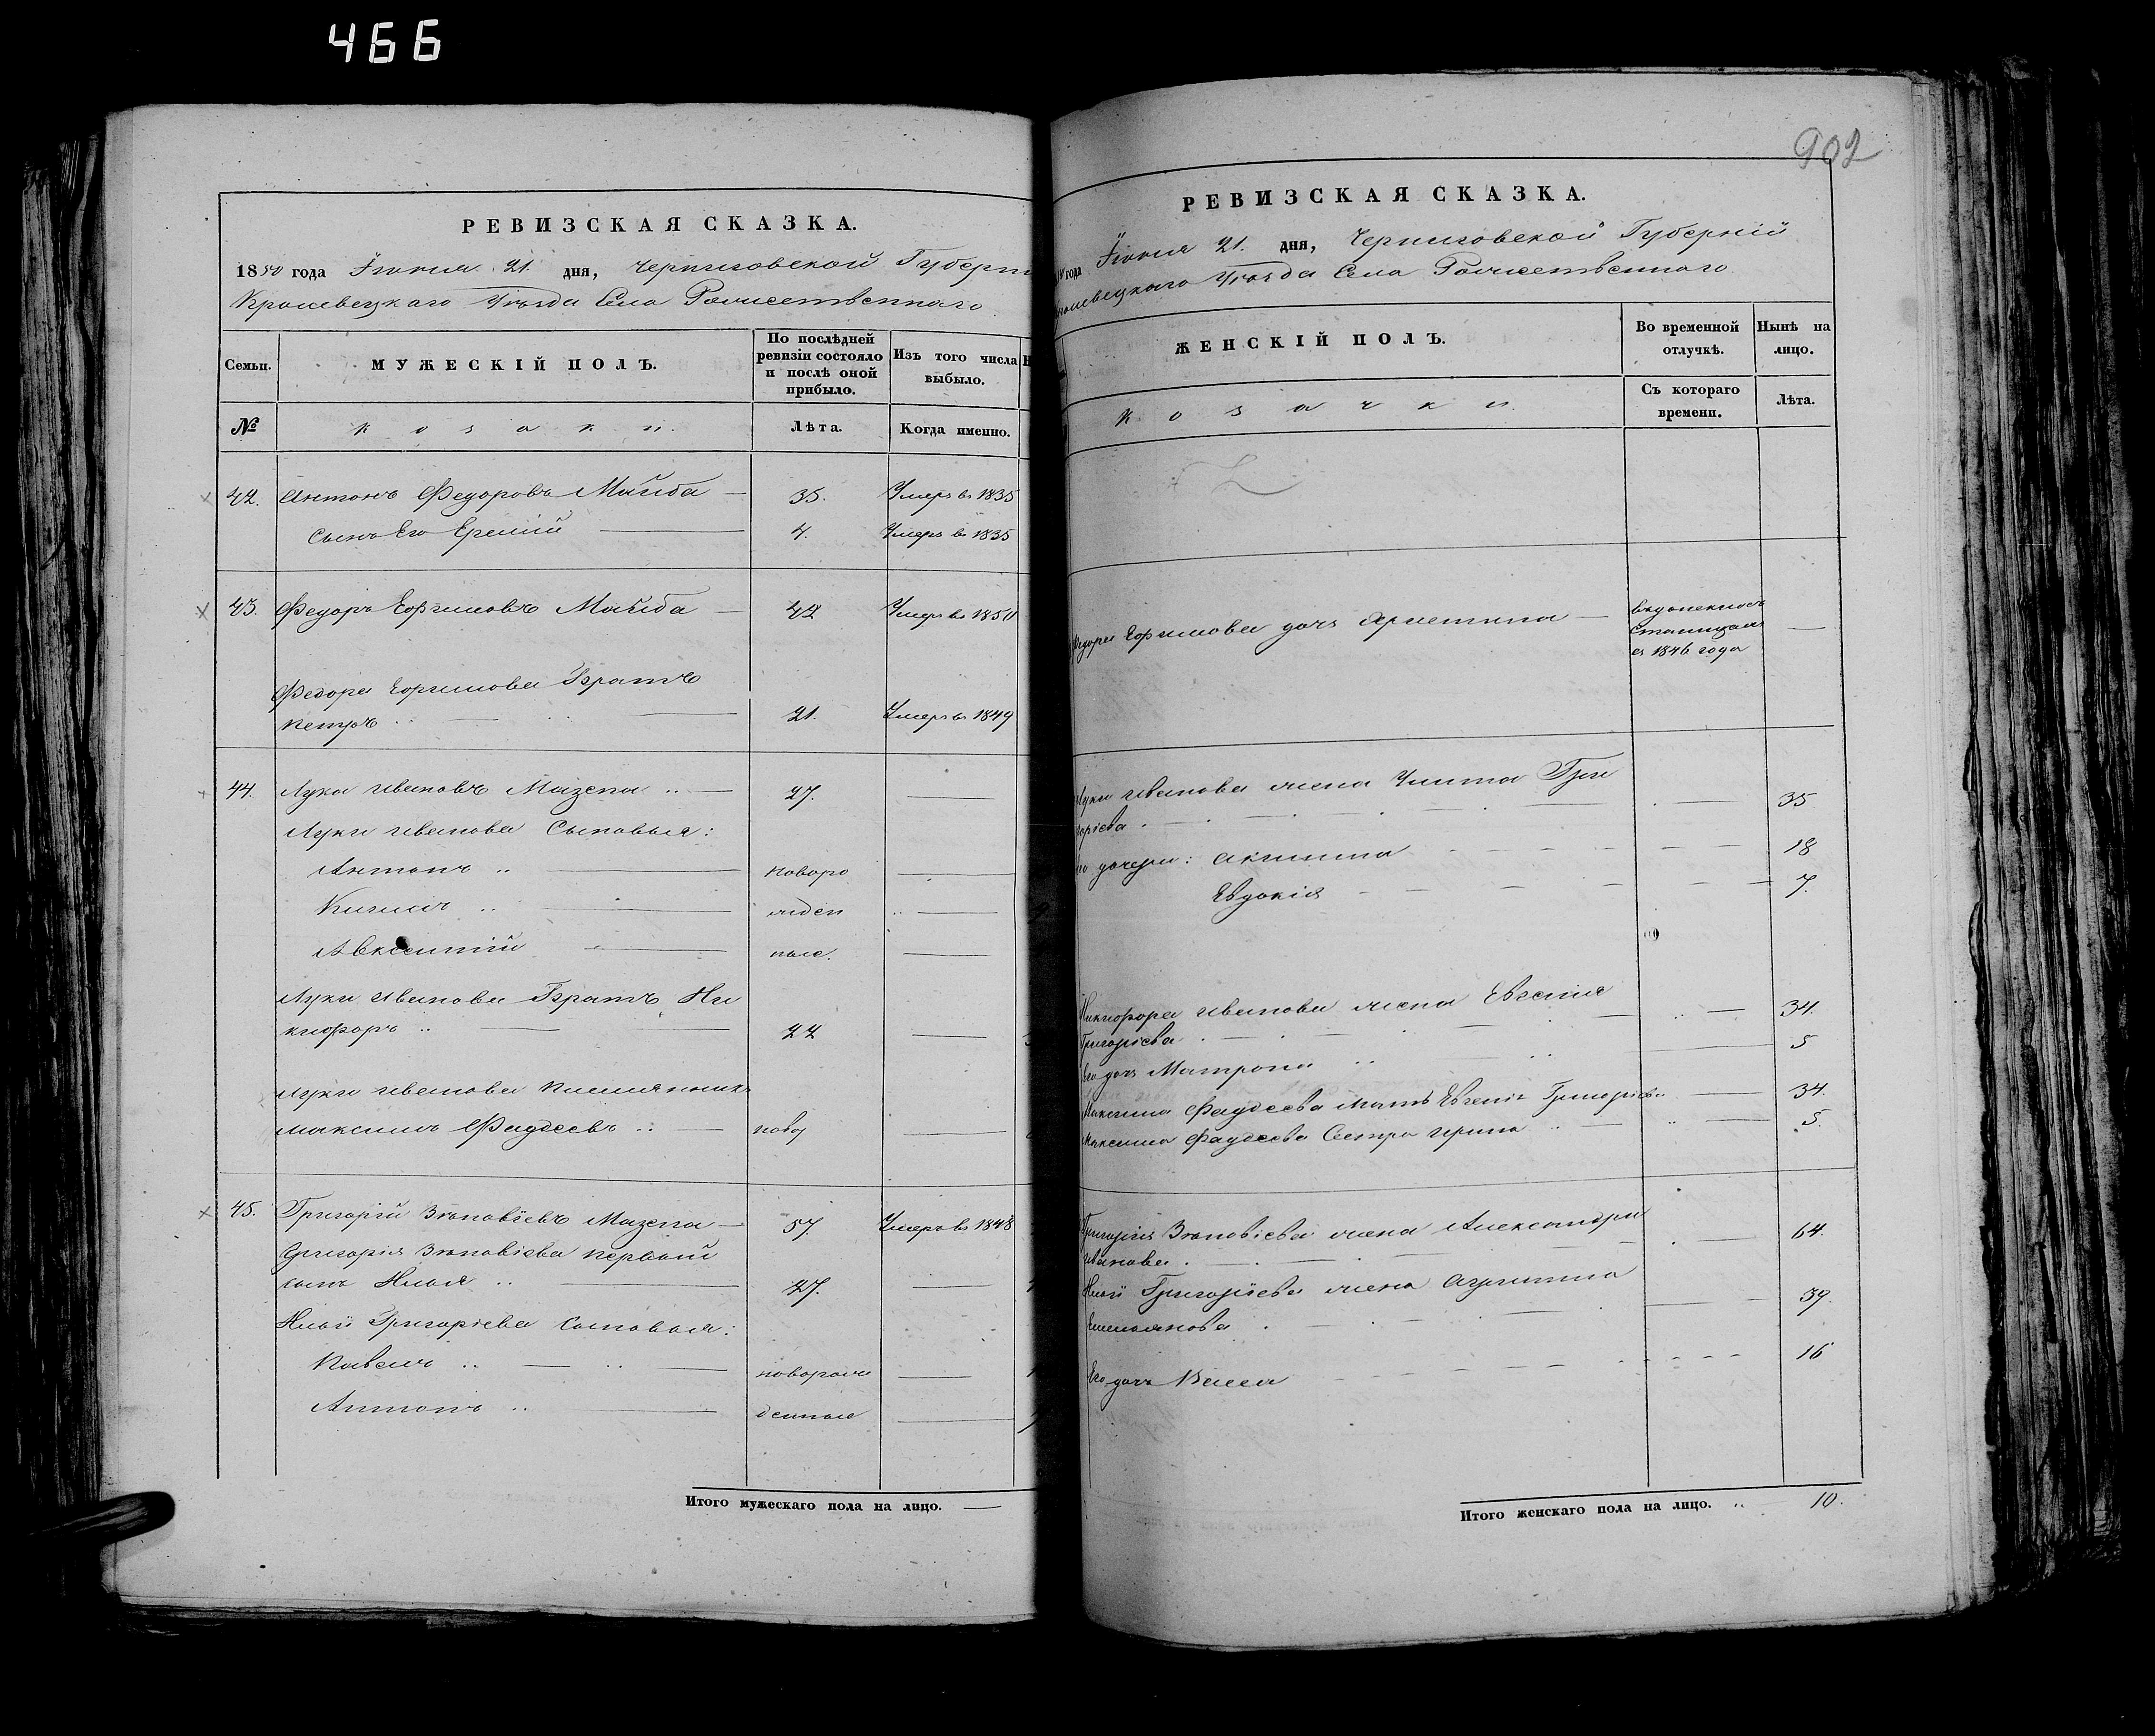 466
РЕВИЗСКАЯ СКАЗКА.
1850 года Іюния 21. дня, Черниговской Губерн
Кролевецкаго Уѣзда Села Рожественнаго
Семьи.
МУЖЕСКІЙ ПОЛЪ.
По послѣдней ревизіи состояло и послѣ оной прибыло.
Изъ того числа выбыло.
№
Козаки.
Лѣта.
Когда именно.
42. Антонъ Федоровъ Майба — 35. Умеръ въ 1835
Сынъ Его Еремій — 4. Умеръ въ 1835
43. Федоръ Ефимовъ Майба — 42 Умеръ въ 1850
Федора Ефимова Братъ
Петръ — 21. Умеръ въ 1849
44. Лука Ивановъ Мазепа — 27. —
Луки Иванова Сыновья:
Антонъ — новоро —
Кирилъ — жден —
Авксентій — ные. —
Луки Иванова Братъ Ни
кифоръ — 22 —
Луки Иванова Племянникъ
Максимъ Фаддеевъ — новор —
45. Григорій Зѣновіевъ Мазепа — 57. Умеръ въ 1848
Григорія Зѣновіева первый
сынъ Илья — 27. —
Ильи Григоріева Сыновья:
Павелъ — новорож —
Антонъ — денные —
Итого мужескаго пола на лицо. —
902
РЕВИЗСКАЯ СКАЗКА.
года Іюния 21. дня, Черниговской Губерніи
ролевецкаго Уѣзда Села Рожественнаго
ЖЕНСКІЙ ПОЛЪ.
Во временной отлучкѣ.
Нынѣ на лицо.
Козачки.
Съ котораго времени.
Лѣта.
Федора Ефимова дочь Христина —
Станицах
съ 1846 года —
Луки Иванова жена Улита Гри
горіева — 35
Его дочери: Акилина — 18
Евдокія — 7.
Никифора Иванова жена Евгенія
Григоріева — 34.
Его дочь Матрона — 5
Максима Фаддеева Мать Евгенія Григоріева — 34.
Максима Фаддеева Сестра Ирина — 5.
Григорія Зѣновіева жена Александра
Иванова — 64.
Ильи Григоріева жена Агрипина
Емельянова — 39.
Его дочь Васса — 16
Итого женскаго пола на лицо. 10.